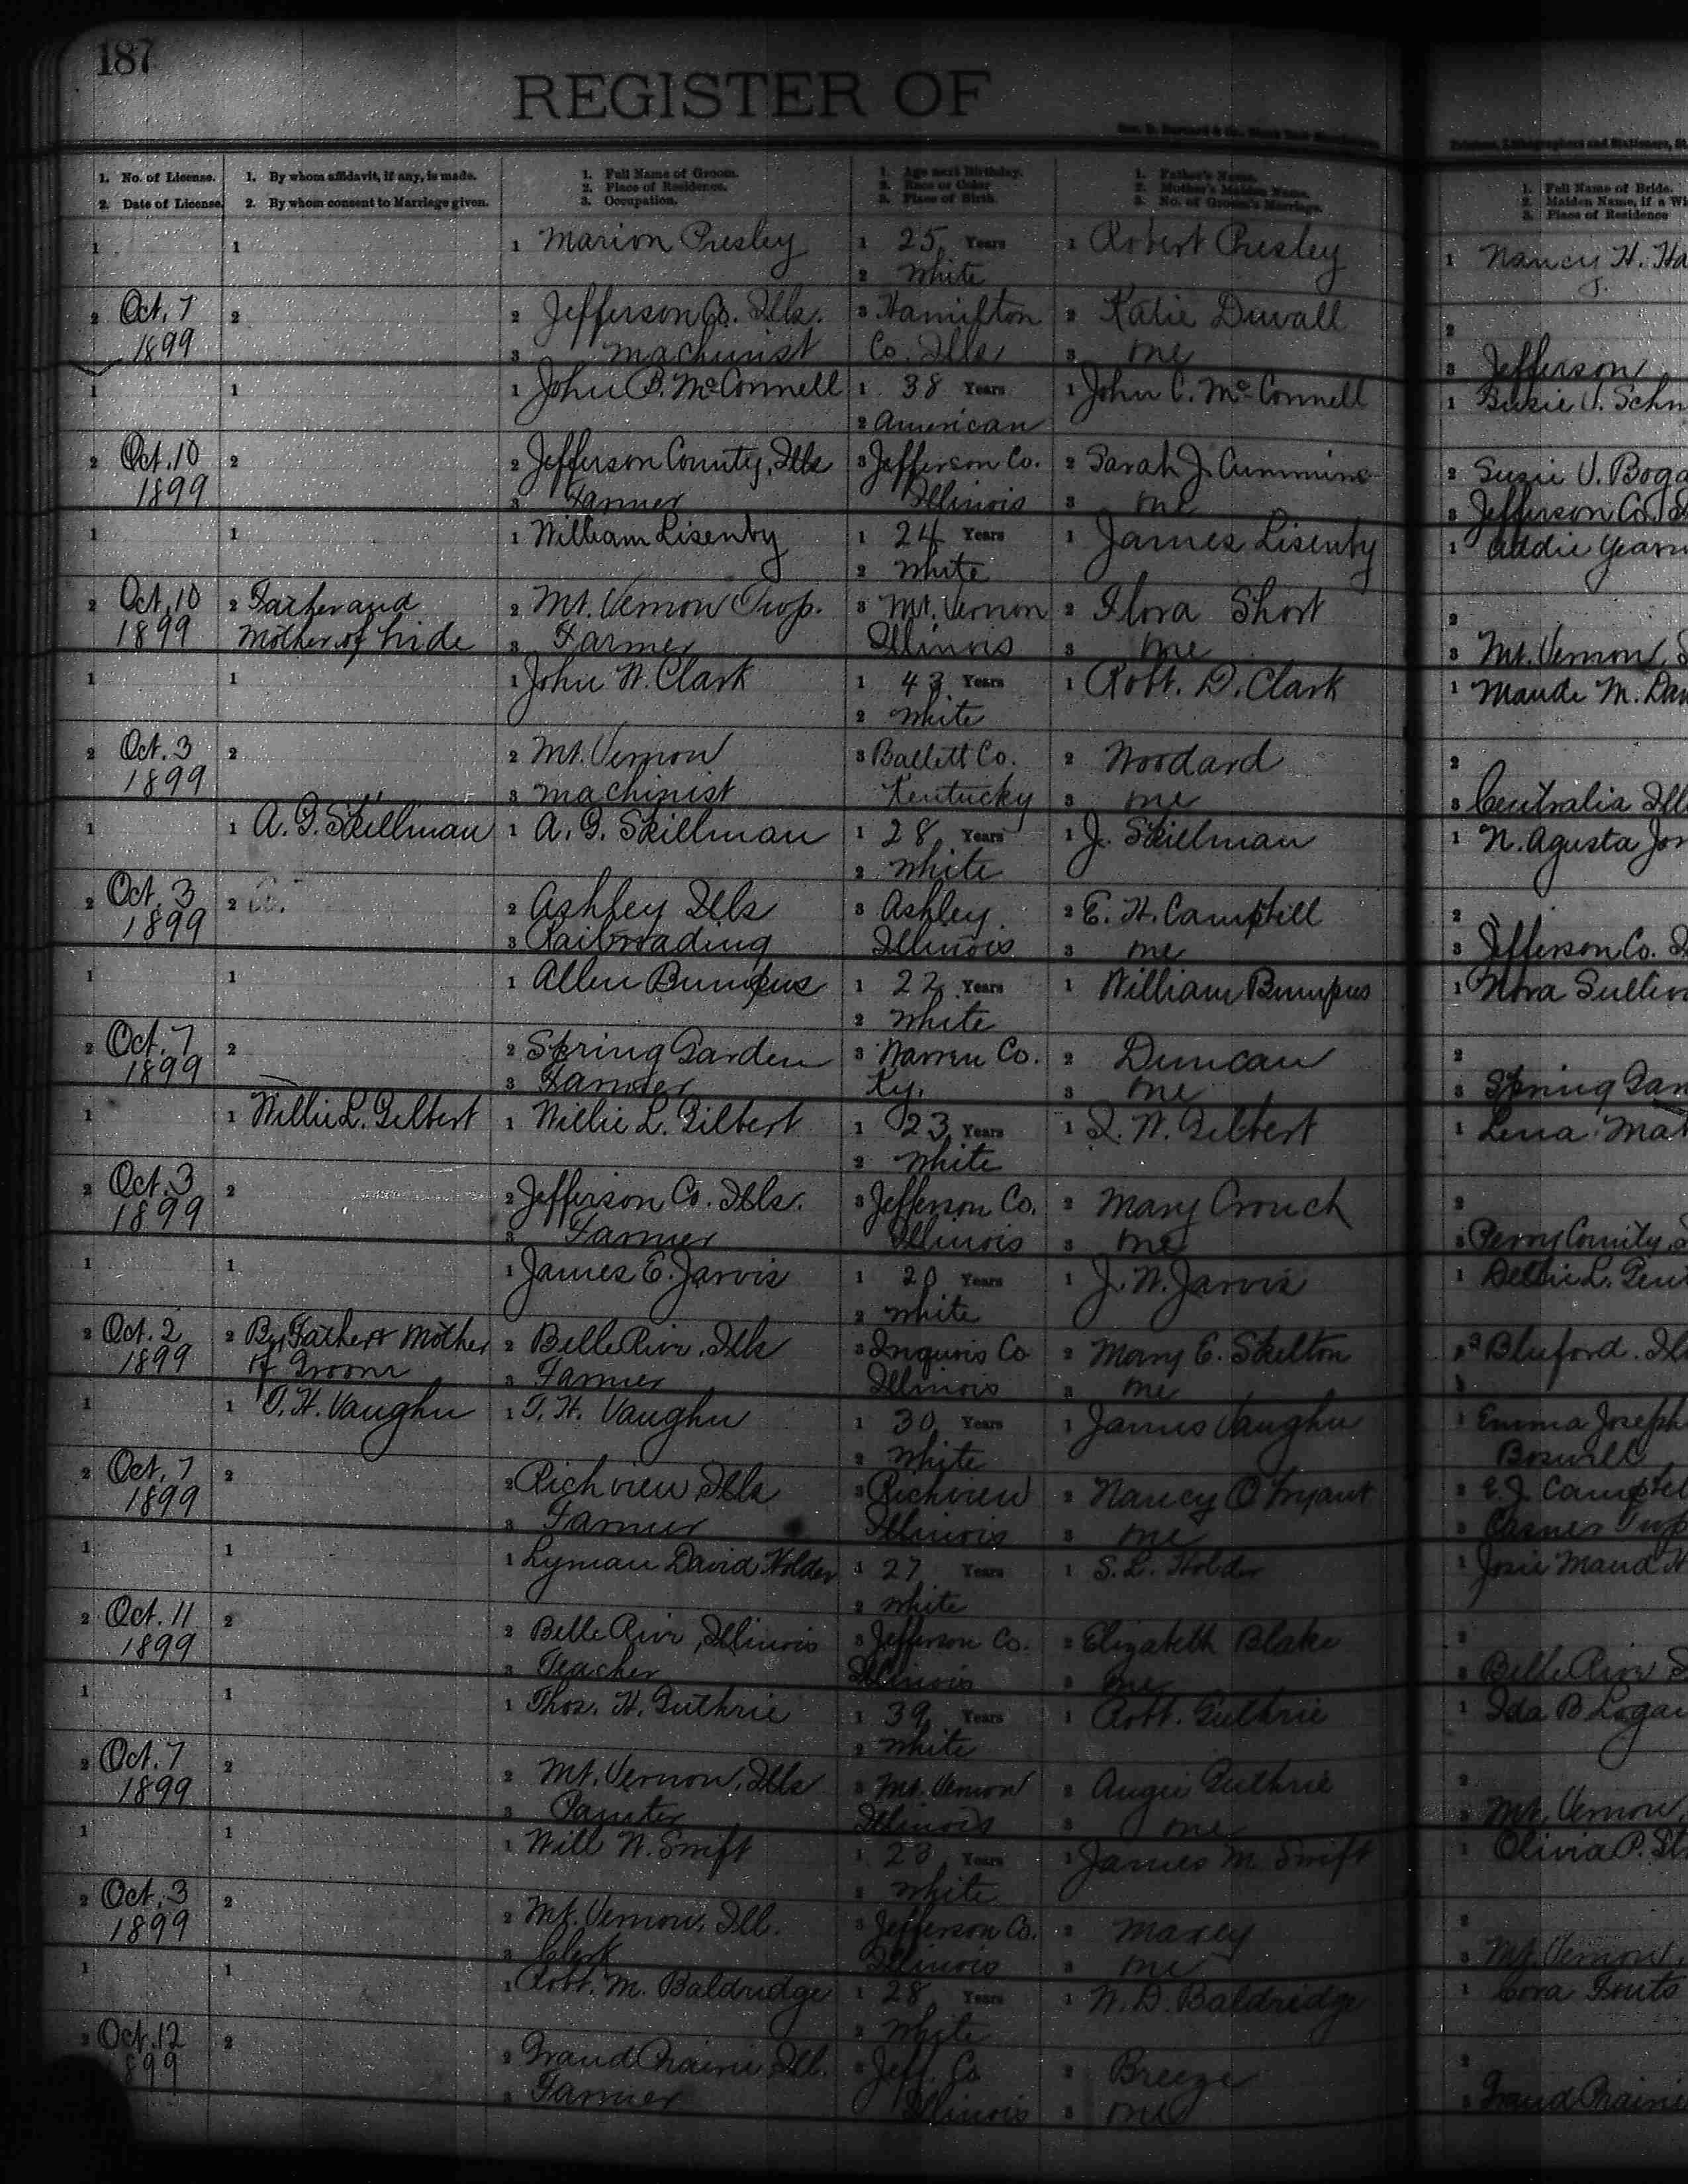 187
REGISTER OF
1. No. of License.
2. Date of License.
1. By whom affidavit, if any, is made.
2. By whom consent to Marriage given.
1. Full Name of Groom.
2. Place of Residence.
3. Occupation.
1. Age next Birthday.
2. Race or Color
3. Place of Birth.
1. Father's Name.
2. Mother's Maiden Name.
3. No. of Groom's Marriage.
1. Full Name of Bride.
2. Maiden Name, if a Wi
3. Place of Residence
1 1 1 Marion Presley 1 25 Years 1 Robert Presley 1 Nancy H. Ha
2 White
2 Oct. 7 2 2 Jefferson Co. Ills. 3 Hamilton 2 Katie Duvall 2
1899 3 Machinist Co. Ills 3 one 3 Jefferson
1 1 1 John B. McConnell 1 38 Years 1 John C. McConnell 1 Susie V. Schn
2 American
2 Oct. 10 2 2 Jefferson County, Ills 3 Jefferson Co. 2 Sarah J. Cummins 2 Susie V. Boga
1899 3 Farmer Illinois 3 one 3 Jefferson Co.
1 1 1 William Lisenby 1 24 Years 1 James Lisenby 1 Addie Yearw
2 White
2 Oct. 10 2 Father and 2 Mt. Vernon Twp. 3 Mt. Vernon 2 Flora Short 2
1899 Mother of bride 3 Farmer Illinois 3 one 3 Mt. Vernon
1 1 1 John W. Clark 1 43 Years 1 Robt. D. Clark 1 Maude M. Dav
2 White
2 Oct. 3 2 2 Mt. Vernon 3 Ballett Co. 2 Woodard 2
1899 3 Machinist Kentucky 3 one 3 Centralia Ill
1 1 A. G. Skillman 1 A. G. Skillman 1 28 Years 1 J. Skillman 1 N. Agusta Jon
2 White
2 Oct. 3 2 2 Ashley Ills 3 Ashley 2 E. H. Campbell 2
1899 3 Railroading Illinois 3 one 3 Jefferson Co.
1 1 1 Allen Bumpus 1 22 Years 1 William Bumpus 1 Nora Sulliv
2 White
2 Oct. 7 2 2 Spring Garden 3 Warren Co. 2 Duncan 2
1899 3 Farmer Ky. 3 one 3 Spring Gar
1 1 Willie L. Gilbert 1 Willie L. Gilbert 1 23 Years 1 I. W. Gilbert 1 Lena Mat
2 White
2 Oct. 3 2 2 Jefferson Co. Ills. 3 Jefferson Co. 2 Mary Crouch 2
1899 3 Farmer Illinois 3 one 3 Perry County,
1 1 1 James E. Jarvis 1 20 Years 1 J. W. Jarvis 1 Dellie L. Gen
2 White
2 Oct. 2 2 By Father & Mother 2 Belle Rive, Ills 3 Iriquois Co 2 Mary E. Skelton 2 Bluford. Il
1899 of Groom 3 Farmer Illinois 3 one 3
1 1 T. H. Vaughn 1 T. H. Vaughn 1 30 Years 1 James Vaughn 1 Emma Joseph
2 White Boswell
2 Oct. 7 2 2 Richview Ills 3 Richview 2 Nancy O Bryant 2 E. J. Campbel
1899 3 Farmer Illinois 3 one 3 Casner Twp
1 1 1 Lyman David Holder 1 27 Years 1 S. L. Holder 1 Josie Maud H
2 White
2 Oct. 11 2 2 Belle Rive, Illinois 3 Jefferson Co. 2 Elizabeth Blake 2
1899 3 Teacher Illinois 3 one 3 Belle Rive
1 1 1 Thos. H. Guthrie 1 39 Years 1 Robt. Guthrie 1 Ida B Logan
2 White
2 Oct. 7 2 2 Mt. Vernon, Ills 3 Mt. Vernon 2 Angie Guthrie 2
1899 3 Painter Illinois 3 one 3 Mt. Vernon,
1 1 1 Will W. Swift 1 23 Years 1 James M Swift 1 Olivia P. St
2 White
2 Oct. 3 2 2 Mt. Vernon, Ill. 3 Jefferson Co. 2 Maxey 2
1899 3 Clerk Illinois 3 one 3 Mt. Vernon,
1 1 1 Robt. M. Baldridge 1 28 Years 1 N. D. Baldridge 1 Cora Fouts
2 White
2 Oct. 12 2 2 Grand Prairie, Ill. 3 Jeff. Co 2 Breeze 2
899 3 Farmer Illinois 3 one 3 Grand Prairie